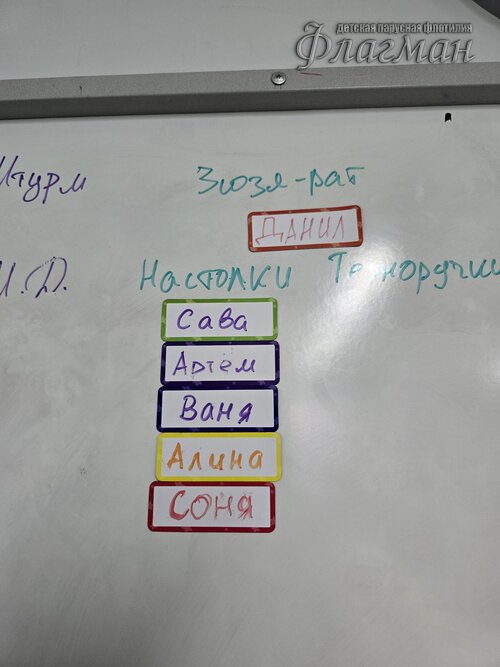 детская парусная флотилия
Флагман
Штурм Зюзя-рат
ДАНИЛ
И.Д. Настолки Техноручки
Сава
Артём
Ваня
Алина
СОНЯ